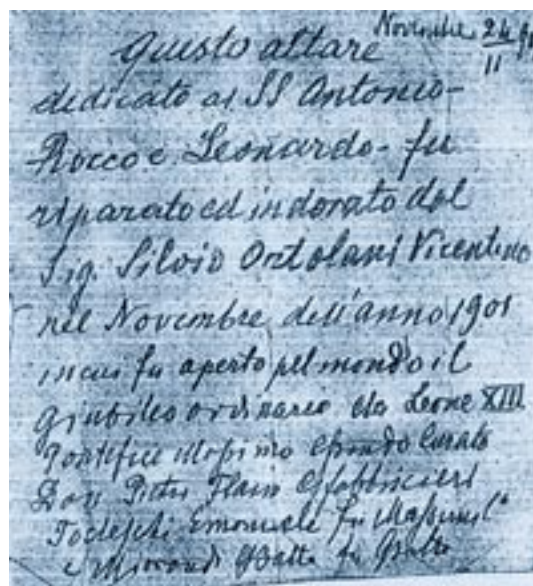 Novembre 24
11
Questo altare
dedicato ai SS Antonio-
Rocco e Leonardo- fu
riparato ed indorato dal
Sig. Silvio Ortolani Vicentino
nel Novembre dell'anno 1901
in cui fu aperto pel mondo il
giubileo ordinario da Leone XIII
Pontefice Massimo essendo Curato
Don Pietro Flain
Todeschi Emanuele fu
e Morandi Batta fu Batta